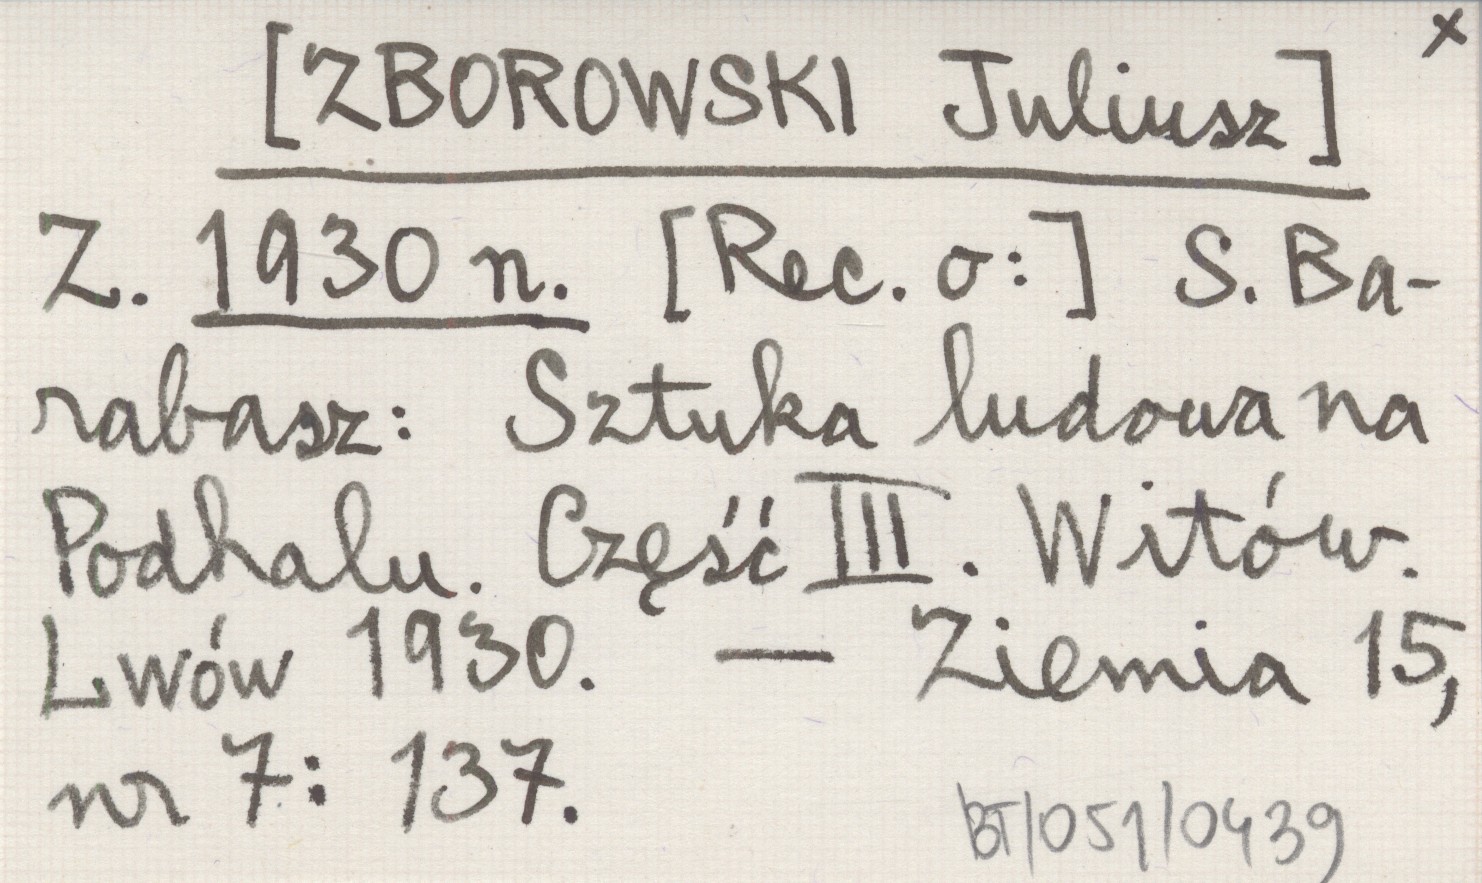 x
[ZBOROWSKI Juliusz]
Z. 1930 n. [Rec. o:] S. Ba-
rabasz: Sztuka ludowa na
Podhalu. Część III. Witów.
Lwów 1930. — Ziemia 15,
nr 7: 137.
BT/051/0439